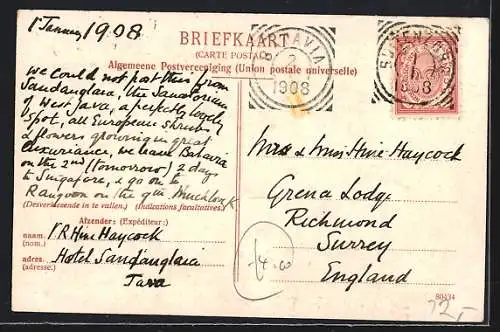 1 January 1908
BRIEFKAART
(CARTE POSTALE)
Algemeene Postvereeniging (Union postale universelle)
BATAVIA
2
1908
BUITENZORG
1908
We could not post this from
Sandanglaia, the Sanatorium
of West Java, a perfectly lovely
spot, all European shrubs
& flowers growing in great
luxuriance, we leave Batavia
on the 2nd (tomorrow) 2 days
to Singapore, & go on to
Rangoon on the 9th. Much love
(Desverkiezende in te vullen.) (Indications facultatives.)
Afzender: (Expéditeur:)
naam. H Haycock
(nom.)
adres. Hotel Sandanglaia
(adresse.)
Java
Mrs & Miss Hine-Haycock
Grena Lodge
Richmond
Surrey
England
80434
12,-